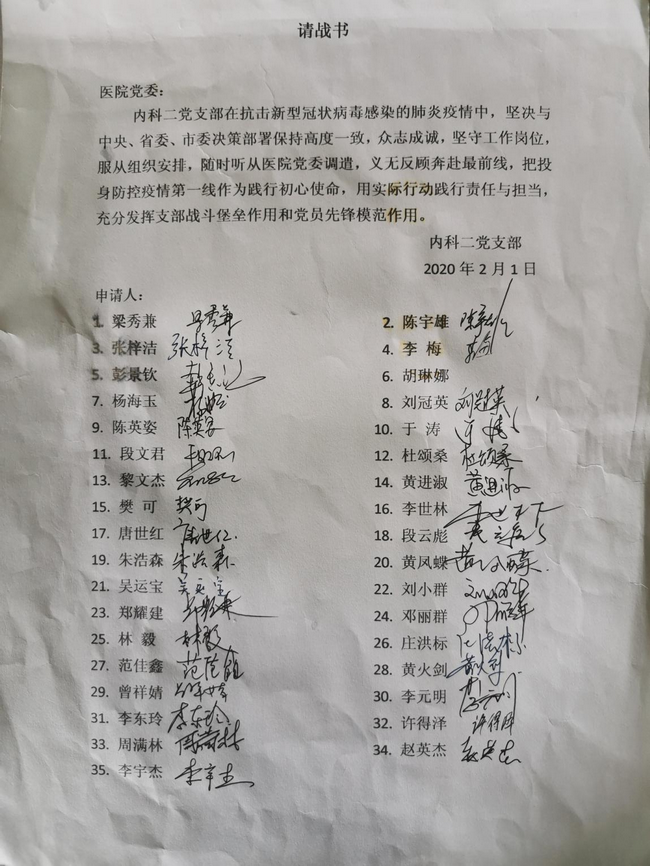 请战书
医院党委：
内科二党支部在抗击新型冠状病毒感染的肺炎疫情中，坚决与
中央、省委、市委决策部署保持高度一致，众志成诚，坚守工作岗位，
服从组织安排，随时听从医院党委调遣，义无反顾奔赴最前线，把投
身防控疫情第一线作为践行初心使命，用实际行动践行责任与担当，
充分发挥支部战斗堡垒作用和党员先锋模范作用。
内科二党支部
2020年2月1日
申请人：
1. 梁秀兼 2. 陈宇雄
3. 张梓洁 张梓洁 4. 李 梅
5. 彭景钦 6. 胡琳娜
7. 杨海玉 8. 刘冠英 刘冠英
9. 陈英姿 陈英姿 10. 于 涛
11. 段文君 12. 杜颂桑 杜颂桑
13. 黎文杰 14. 黄进淑 黄进淑
15. 樊 可 樊可 16. 李世林
17. 唐世红 18. 段云彪
19. 朱浩森 朱浩森 20. 黄凤蝶
21. 吴运宝 吴运宝 22. 刘小群
23. 郑耀建 24. 邓丽群
25. 林 毅 林毅 26. 庄洪标
27. 范佳鑫 28. 黄火剑
29. 曾祥婧 30. 李元明
31. 李东玲 李东玲 32. 许得泽 许得泽
33. 周满林 周满林 34. 赵英杰 赵英杰
35. 李宇杰 李宇杰